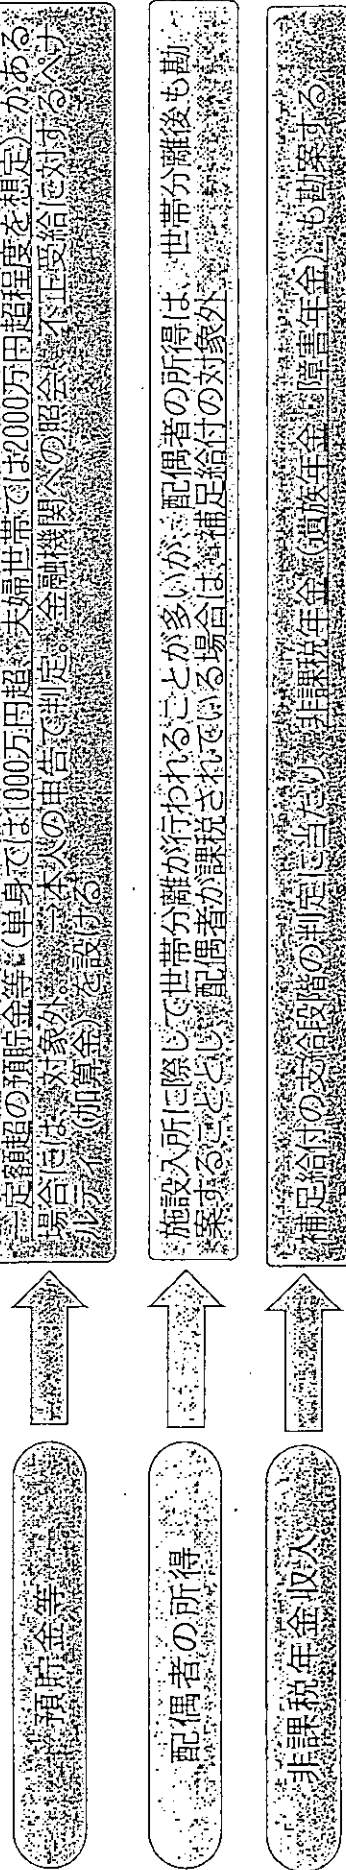 預貯金等
一定額超の預貯金等（単身では1000万円超、夫婦世帯では2000万円超程度を想定）がある
場合には、対象外。 本人の申告で判定。金融機関への照会、不正受給に対するペナ
ルティ（加算金）を設ける
配偶者の所得
施設入所に際して世帯分離が行われることが多いが、配偶者の所得は、世帯分離後も勘
案することとし、配偶者が課税されている場合は、補足給付の対象外
非課税年金収入
補足給付の支給段階の判定に当たり、非課税年金（遺族年金・障害年金）も勘案する